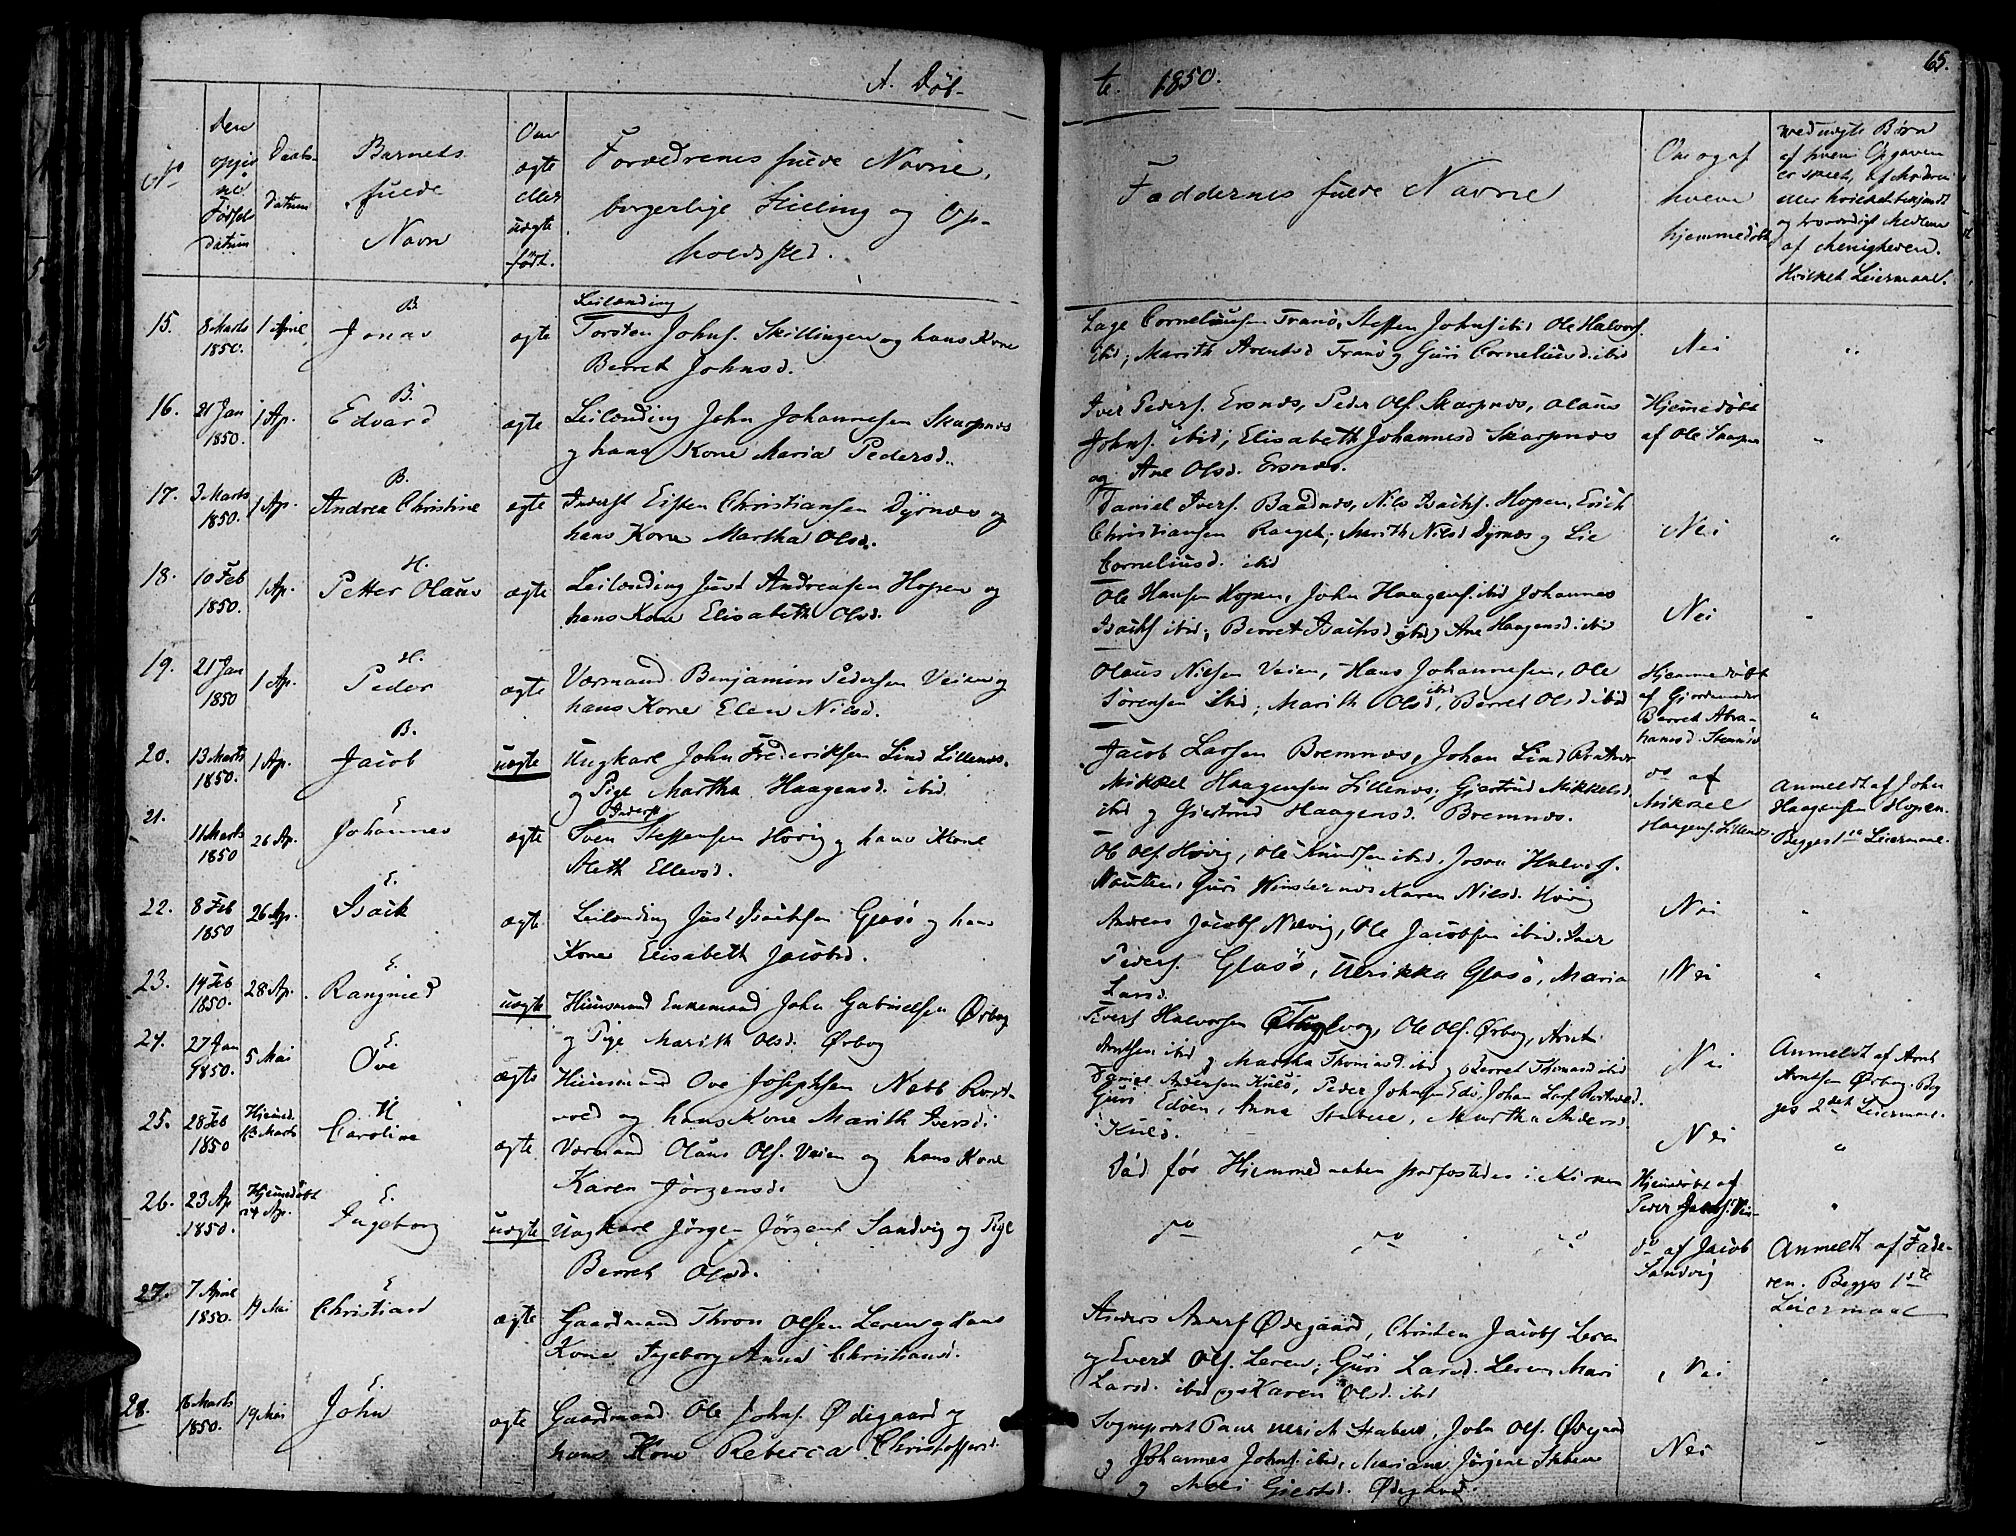 A. Døb-
te 1850.
65.
No
Den opgivne Fødsels datum
Daabs-datum
Barnets fulde Navn
Om ægte eller uægte født.
Forældrenes fulde Navne, borgerlige Stilling og Opholdsted.
Faddernes fulde Navne
Om og af hvem hjemmedøbt
ved uægte Børn af hvem Opgaven er skeet, af Moderen eller hvilket bekjendt og troværdigt Medlem af Menigheden. Hvilket Leiermaal.
15. 8 Marts 1850. 1 April B. Jonas ægte
Leilænding
Torsten Johns. Skillingen og hans Kone
Berret Johnsd.
Lage Corneliusen Tranö, Steffen Johns. ibid Ole Halvors.
ibid; Marith Arentsd Tranö og Guri Corneliusd. ibid
Nei "
16. 21 Jan 1850. 1 Ap. B. Edvard ægte
Leilænding John Johannesen Skarpnes
og hans Kone Maria Pedersd.
Iver Peders. Ersnes, Peder Ols. Skarpnes, Olaus
Johns. ibid; Elisabeth Johannesd Skarpnes
og Ane Olsd. Ersnes.
Hjemmedøbt
af Ole
"
17. 3 Marts 1850. 1 Ap. B. Andrea Christine ægte
Inderst Eisten Christiansen Dyrnes og
hans Kone Martha Olsd.
Daniel Ivers. Baadnes, Nils Isachs. Hopen, Erich
Christiansen Ranget; Marith Nilsd Dyrnes og Lie
Corneliusd. ibid
Nei "
18. 10 Feb 1850. 1 Ap. H. Petter Olaus ægte
Leilænding Just Andreasen Hopen og
hans Kone Elisabeth Olsd.
Ole Hansen Hopen, John Haagens. ibid Johannes
Isachs. ibid; Berret Isachsd ibid, Ane Haagensd. ibid
Nei "
19. 21 Jan 1850 1 Ap. H. Peder ægte
Værmand Benjamin Pedersen Veien og
hans Kone Elen Nilsd.
Olaus Nielsen Veien, Hans Johannesen, Ole
Sörensen ibid; Marith Olsd. ibid, Berret Olsd ibid
Hjemmedøbt
af Gjordemoder
Berret Abra-
hamsd.
"
20. 13 Marts 1850. 1 Ap. B. Jacob uægte
Ungkarl John Frederiksen Lind Lillenes.
og Pige Martha Haagensd. ibid
Jacob Larsen Bremnes, Johan Lind
Mikkel Haagensen Lillenes; Gjertrud Mikkelsd.
ibid og Gjertrud Haagensd. Bremnes.
do af
Mikkel
Haagens. Lillenes.
Anmeldt af John
Haagensen Hopen.
Begges 1ste Leiermaal.
21. 11 Marts 1850 26 Ap. E. Johannes ægte
Inderst
Sven Steffensen Høvig og hans Kone
Aleth Ellevsd.
Ole Ols. Høvig, Ole Knudsen ibid. Halvors.
Guri Karen Nilsd. Høvig
Nei "
22. 8 Feb 1850 26 Ap. E. Isach ægte
Leilænding Just Isachsen Glasö og hans
Kone Elisabeth Jacobsd.
Anders Jacobs. Ole Jacobsen ibid. Iver
Peders. Glasö, Ulrikka Glasö, Maria
Larsd.
Nei "
23. 14 Feb 1850. 28 Ap. E. Rangnild uægte
Huusmand Enkemand John Gabrielsen Ørbog
og Pige Marith Olsd. Ørbog
Sivert Halvorsen Ole Ols. Ørbog, Arnt
Arntsen ibid og Martha Thomasd. ibid og Berret Thomasd ibid
Nei
Anmeldt af Arnt
Arntsen Ørbog. Beg-
ges 2det Leiermaal.
24. 27 Jan 1850. 5 Mai E. Ove ægte
Huusmand Ove Josephsen Nebb
og hans Kone Marith Iversd.
Andersen Kulö, Peder Johansen Edö, Johan Lars.
Guri Edöen, Anna Stabue, Martha Andersd.
Kulö.
Nei "
25. 28 Feb 1850 Hjemmed. 13 Marts H Caroline ægte
Værmand Olaus Ols. Veien og hans Kone
Karen Jørgensd.
Död før Hjemmedaaben stadfæstedes i Kirken
Hjemmedøbt af
Peder
"
26. 23 Ap 1850. Hjemmedøbt 24 Ap. E. Ingeborg uægte
Ungkarl Jörgen Jörgens. Sandvig og Pige
Berret Olsd.
do do do
do af Jacob
Sandvig
Anmeldt af Fade-
ren. Begges 1ste
Leiermaal
27. 7 April 1850. 19 Mai E. Christian ægte
Gaardmand Thron Olsen Leren og hans
Kone Ingeborg Anna Christiansd.
Anders Anders. Ødegaard, Christen Jacobs. Leren
og Evert Ols. Leren; Guri Larsd. Leren Mari
Larsd. ibid og Karen Olsd. ibid
Nei "
28. 16 Marts 1850. 19 Mai E. John ægte
Gaardmand Ole Johns. Ødegaard og
hans Kone Rebecca Christoffersd.
Sognepræst Paul Ulrich Stabue, John Ols. Ødegaard
og Johannes Johns. ibid, Mariane Jörgine Stabue
og Gjertsd. Ødegaard.
Nei "